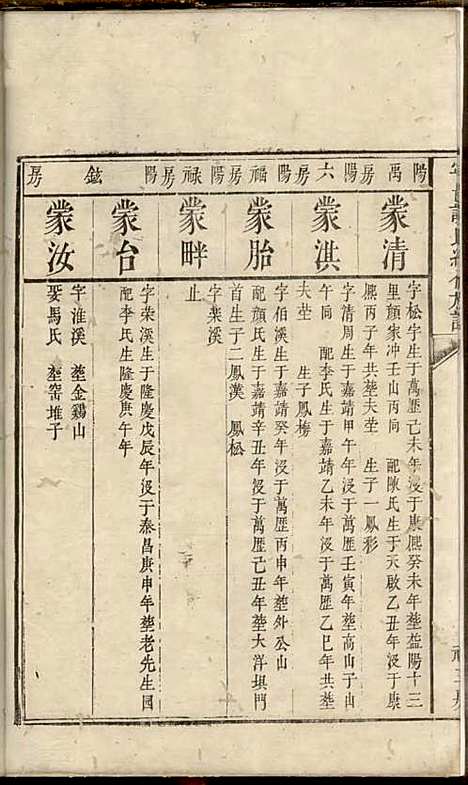 陽禹房 陽六房 陽福房 陽祿房 陽鉉房
蒙清
字松字生于萬歷己未年歿于康熙癸未年塟益陽十三
里顏家冲壬山丙向 配陳氏生于天啟乙丑年歿于康
熙丙子年共塟夫塋 生子一鳳彩
蒙淇
字清周生于嘉靖甲午年歿于萬歷壬寅年塟高山子山
午向 配李氏生于嘉靖乙未年歿于萬歷乙巳年共塟
夫塋 生子鳳梅
蒙胎
字伯溪生于嘉靖癸年歿于萬歷丙申年塟外公山
配顏氏生于嘉靖辛丑年歿于萬歷己丑年塟大洋垻門
首生子二鳳漢 鳳松
蒙畔
字葉溪
止
蒙台
字柴溪生于隆慶戊辰年歿于泰昌庚申年塟老先生園
配李氏生隆慶庚午年
蒙汝
字淮溪 塟金鷄山
娶馬氏 塟窑堆子